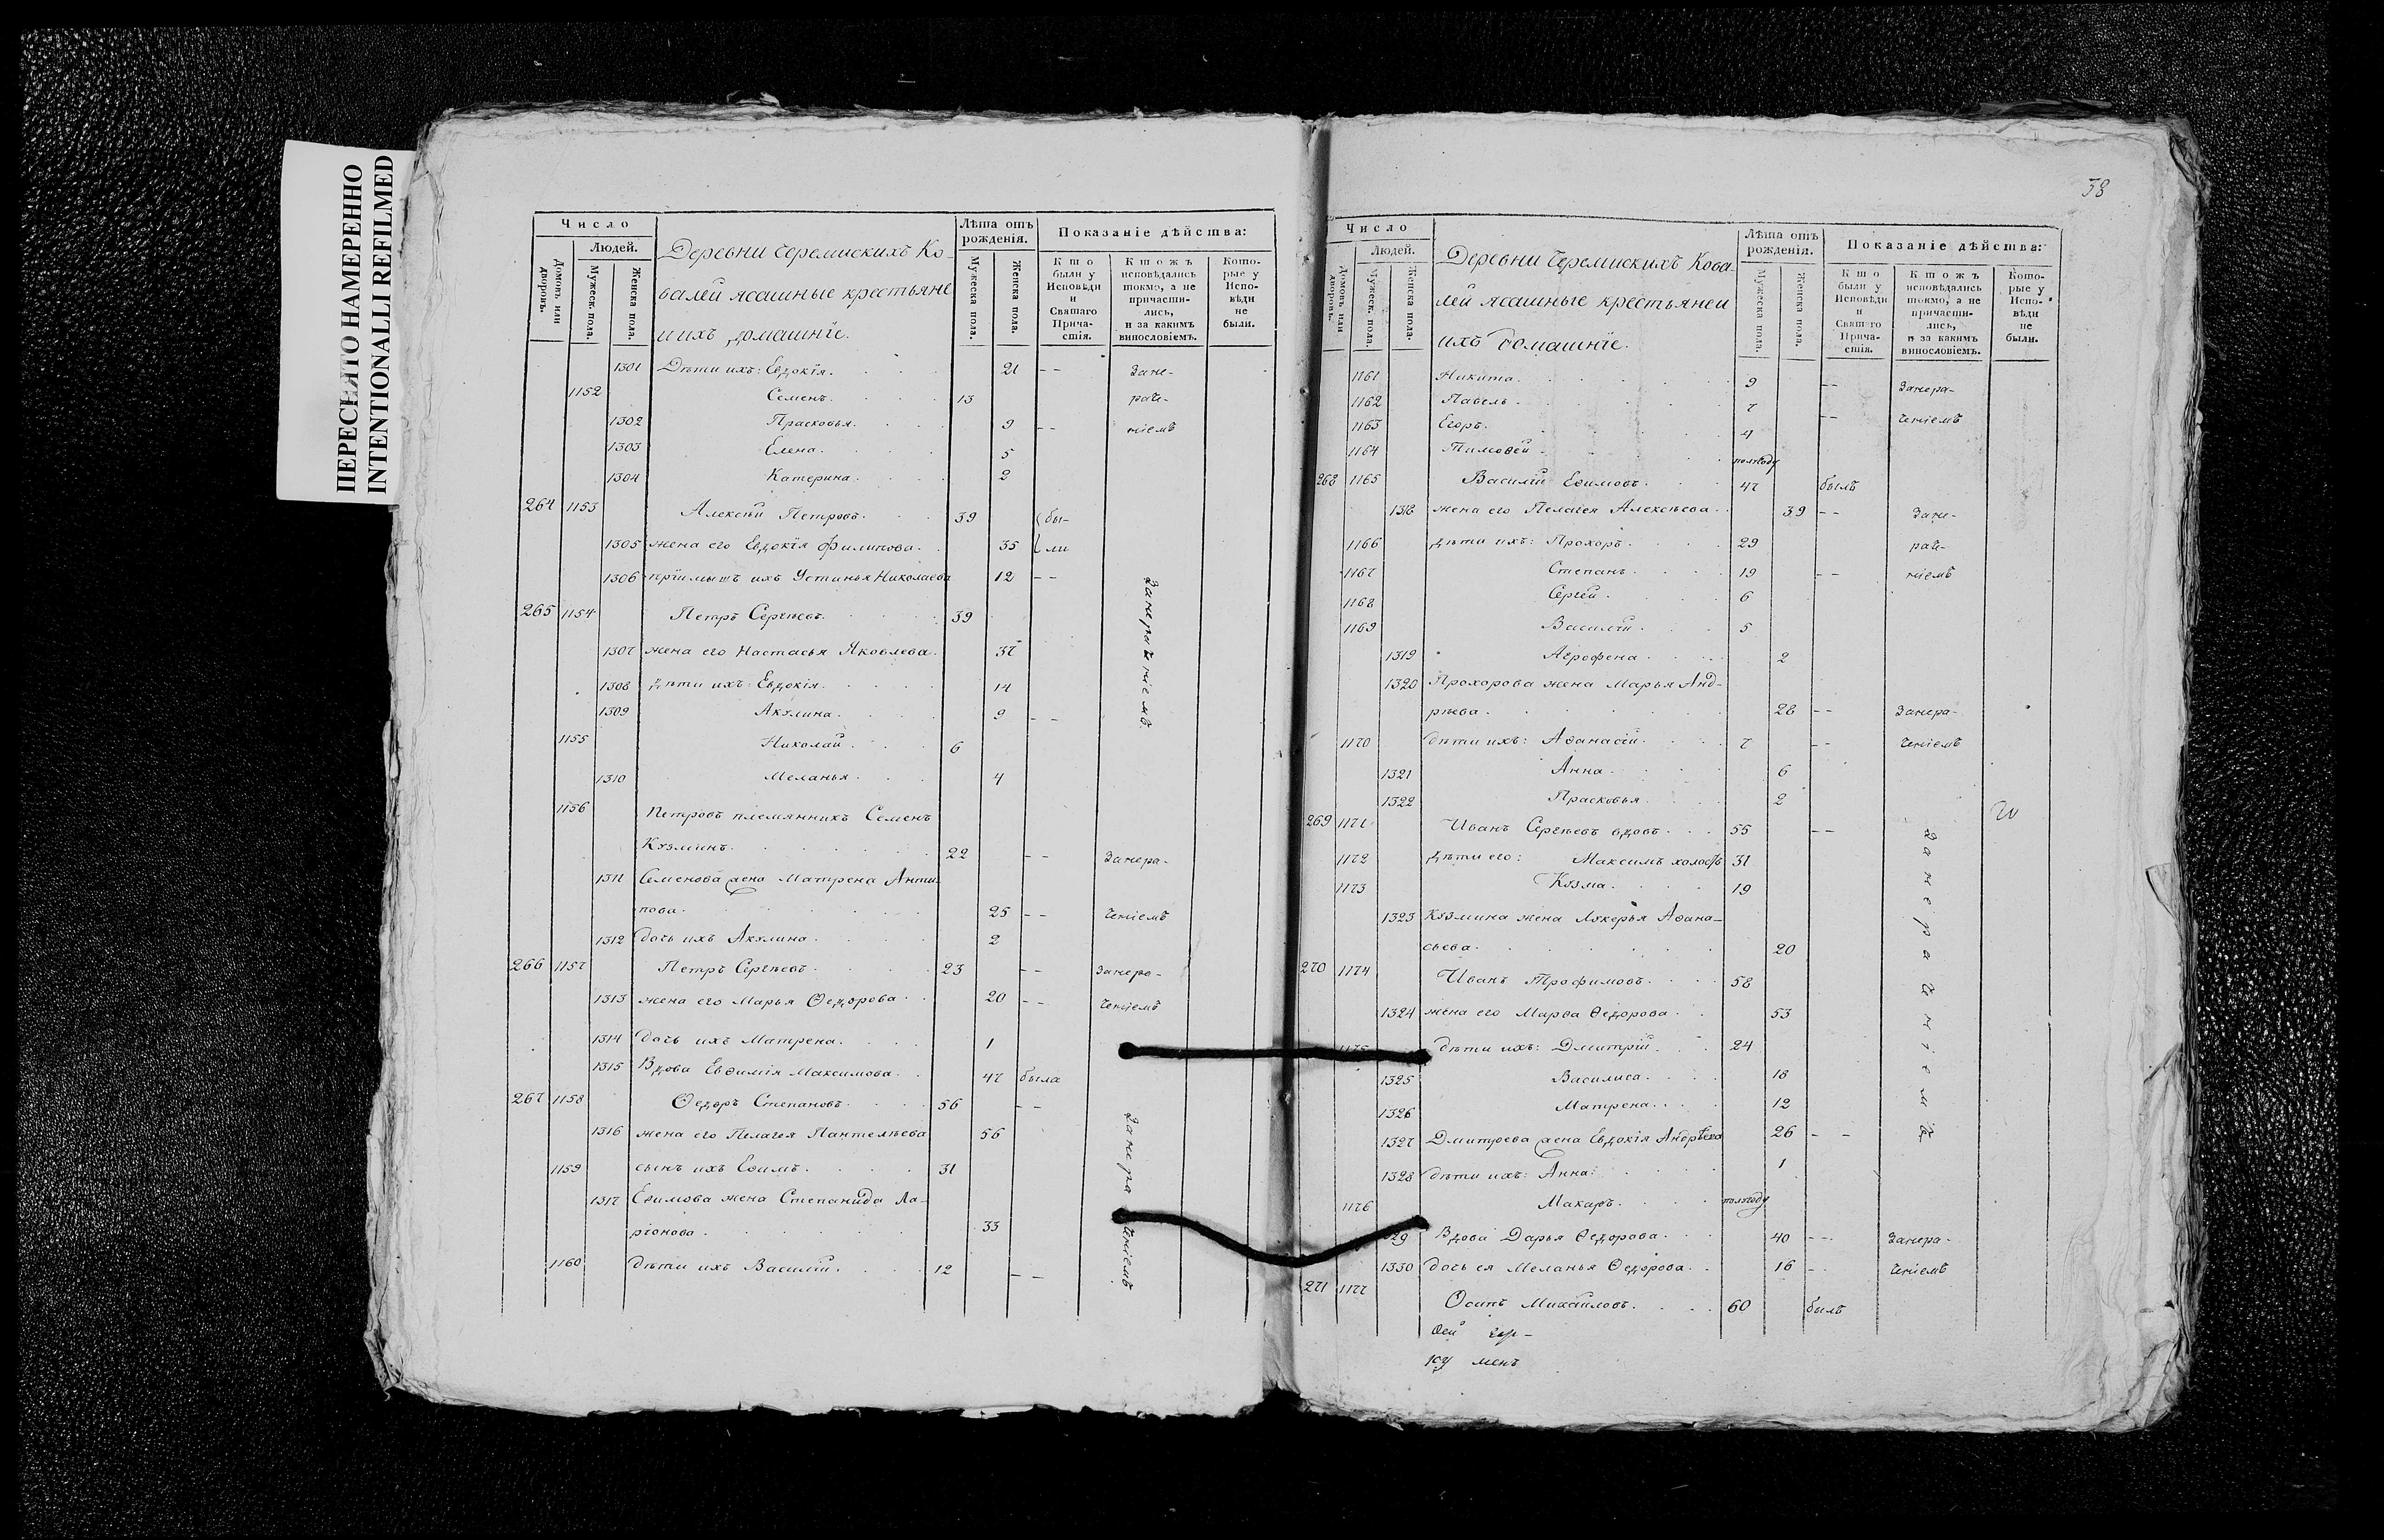 ПЕРЕСНЯТО НАМЕРЕННО
INTENTIONALLI REFILMED
Число
Людей.
Домовъ или дворовъ.
Мужеск. пола.
Женска пола.
Деревни Черемискихъ Ко-
валей ясашные крестьяне
и ихъ домашніе.
Лѣта отъ рожденія.
Мужеска пола.
Женска пола.
Показаніе дѣйства:
Кто были у Исповѣди и Святаго Причастія.
Ктожъ исповѣдались токмо, а не причастились, и за какимъ винословіемъ.
Которые у Исповѣди не были.
1301 Дѣти ихъ: Евдокія. 21 -- Зане-
1152 Семенъ. 13 раче-
1302 Прасковья. 9 -- ніемъ
1303 Елена. 5
1304 Катерина. 2
264 1153 Алексѣй Петровъ. 39 бы-
1305 жена его Евдокія Филипова. 35 ли
1306 пріимышъ ихъ Устинья Николаева 12 --
Занераченіемъ
265 1154 Петръ Сергѣевъ. 39
1307 жена его Настасья Яковлева. 37
1308 дѣти ихъ: Евдокія. 14
1309 Акулина. 9 --
1155 Николай. 6
1310 Меланья. 4
1156 Петровъ племянникъ Семенъ
Кузминъ. 22 -- Занера-
1311 Семенова жена Матрена Анти-
пова. 25 -- ченіемъ
1312 дочь ихъ Акулина. 2
266 1157 Петръ Сергѣевъ. 23 -- Занера-
1313 жена его Марья Ѳедорова. 20 -- ченіемъ
1314 дочь ихъ Матрена. 1
1315 Вдова Евѳимія Максимова. 47 была
267 1158 Ѳедоръ Степановъ. 56 --
1316 жена его Пелагея Пантелѣева 56
Занераченіемъ
1159 сынъ ихъ Еѳимъ. 31
1317 Еѳимова жена Степанида Ла-
ріонова. 33
1160 дѣти ихъ Василій. 12 --
38
Число
Людей.
Домовъ или дворовъ.
Мужеск. пола.
Женска пола.
Деревни Черемискихъ Кова-
лей ясашные крестьяне и
ихъ домашніе.
Лѣта отъ рожденія.
Мужеска пола.
Женска пола.
Показаніе дѣйства:
Кто были у Исповѣди и Святаго Причастія.
Ктожъ исповѣдались токмо, а не причастились, и за какимъ винословіемъ.
Которые у Исповѣди не были.
1161 Никита. 9 -- Занера-
1162 Павелъ. 7 -- ченіемъ
1163 Егоръ. 4
1164 Тимоѳей. полгоду
268 1165 Василій Еѳимовъ. 47 былъ
1318 жена его Пелагея Алексѣева. 39 -- Зане-
1166 дѣти ихъ: Прохоръ. 29 раче-
1167 Степанъ. 19 -- ніемъ
1168 Сергѣй. 6
1169 Василій. 5
1319 Агрофена. 2
1320 Прохорова жена Марья Анд-
рѣева. 28 -- Занера-
1170 дѣти ихъ: Аѳанасій. 7 -- ченіемъ
1321 Анна. 6
1322 Прасковья. 2
269 1171 Иванъ Сергѣевъ вдовъ. 55 --
1172 дѣти его: Максимъ холостъ 31
1173 Кузма. 19
Занераченіемъ
1323 Кузмина жена Лукерья Аѳана-
сьева. 20
270 1174 Иванъ Трофимовъ. 58
1324 жена его Марѳа Ѳедорова. 53
1175 дѣти ихъ: Дмитрій. 24
1325 Василиса. 18
1326 Матрена. 12
1327 Дмитрева жена Евдокія Андрѣева 26 --
1328 дѣти ихъ: Анна: 1
1176 Макаръ. полгоду
29 Вдова Дарья Ѳедорова. 40 -- Занера-
1330 дочь ея Меланья Ѳедорова. 16 - ченіемъ
271 1177 Осипъ Михайловъ. 60 былъ